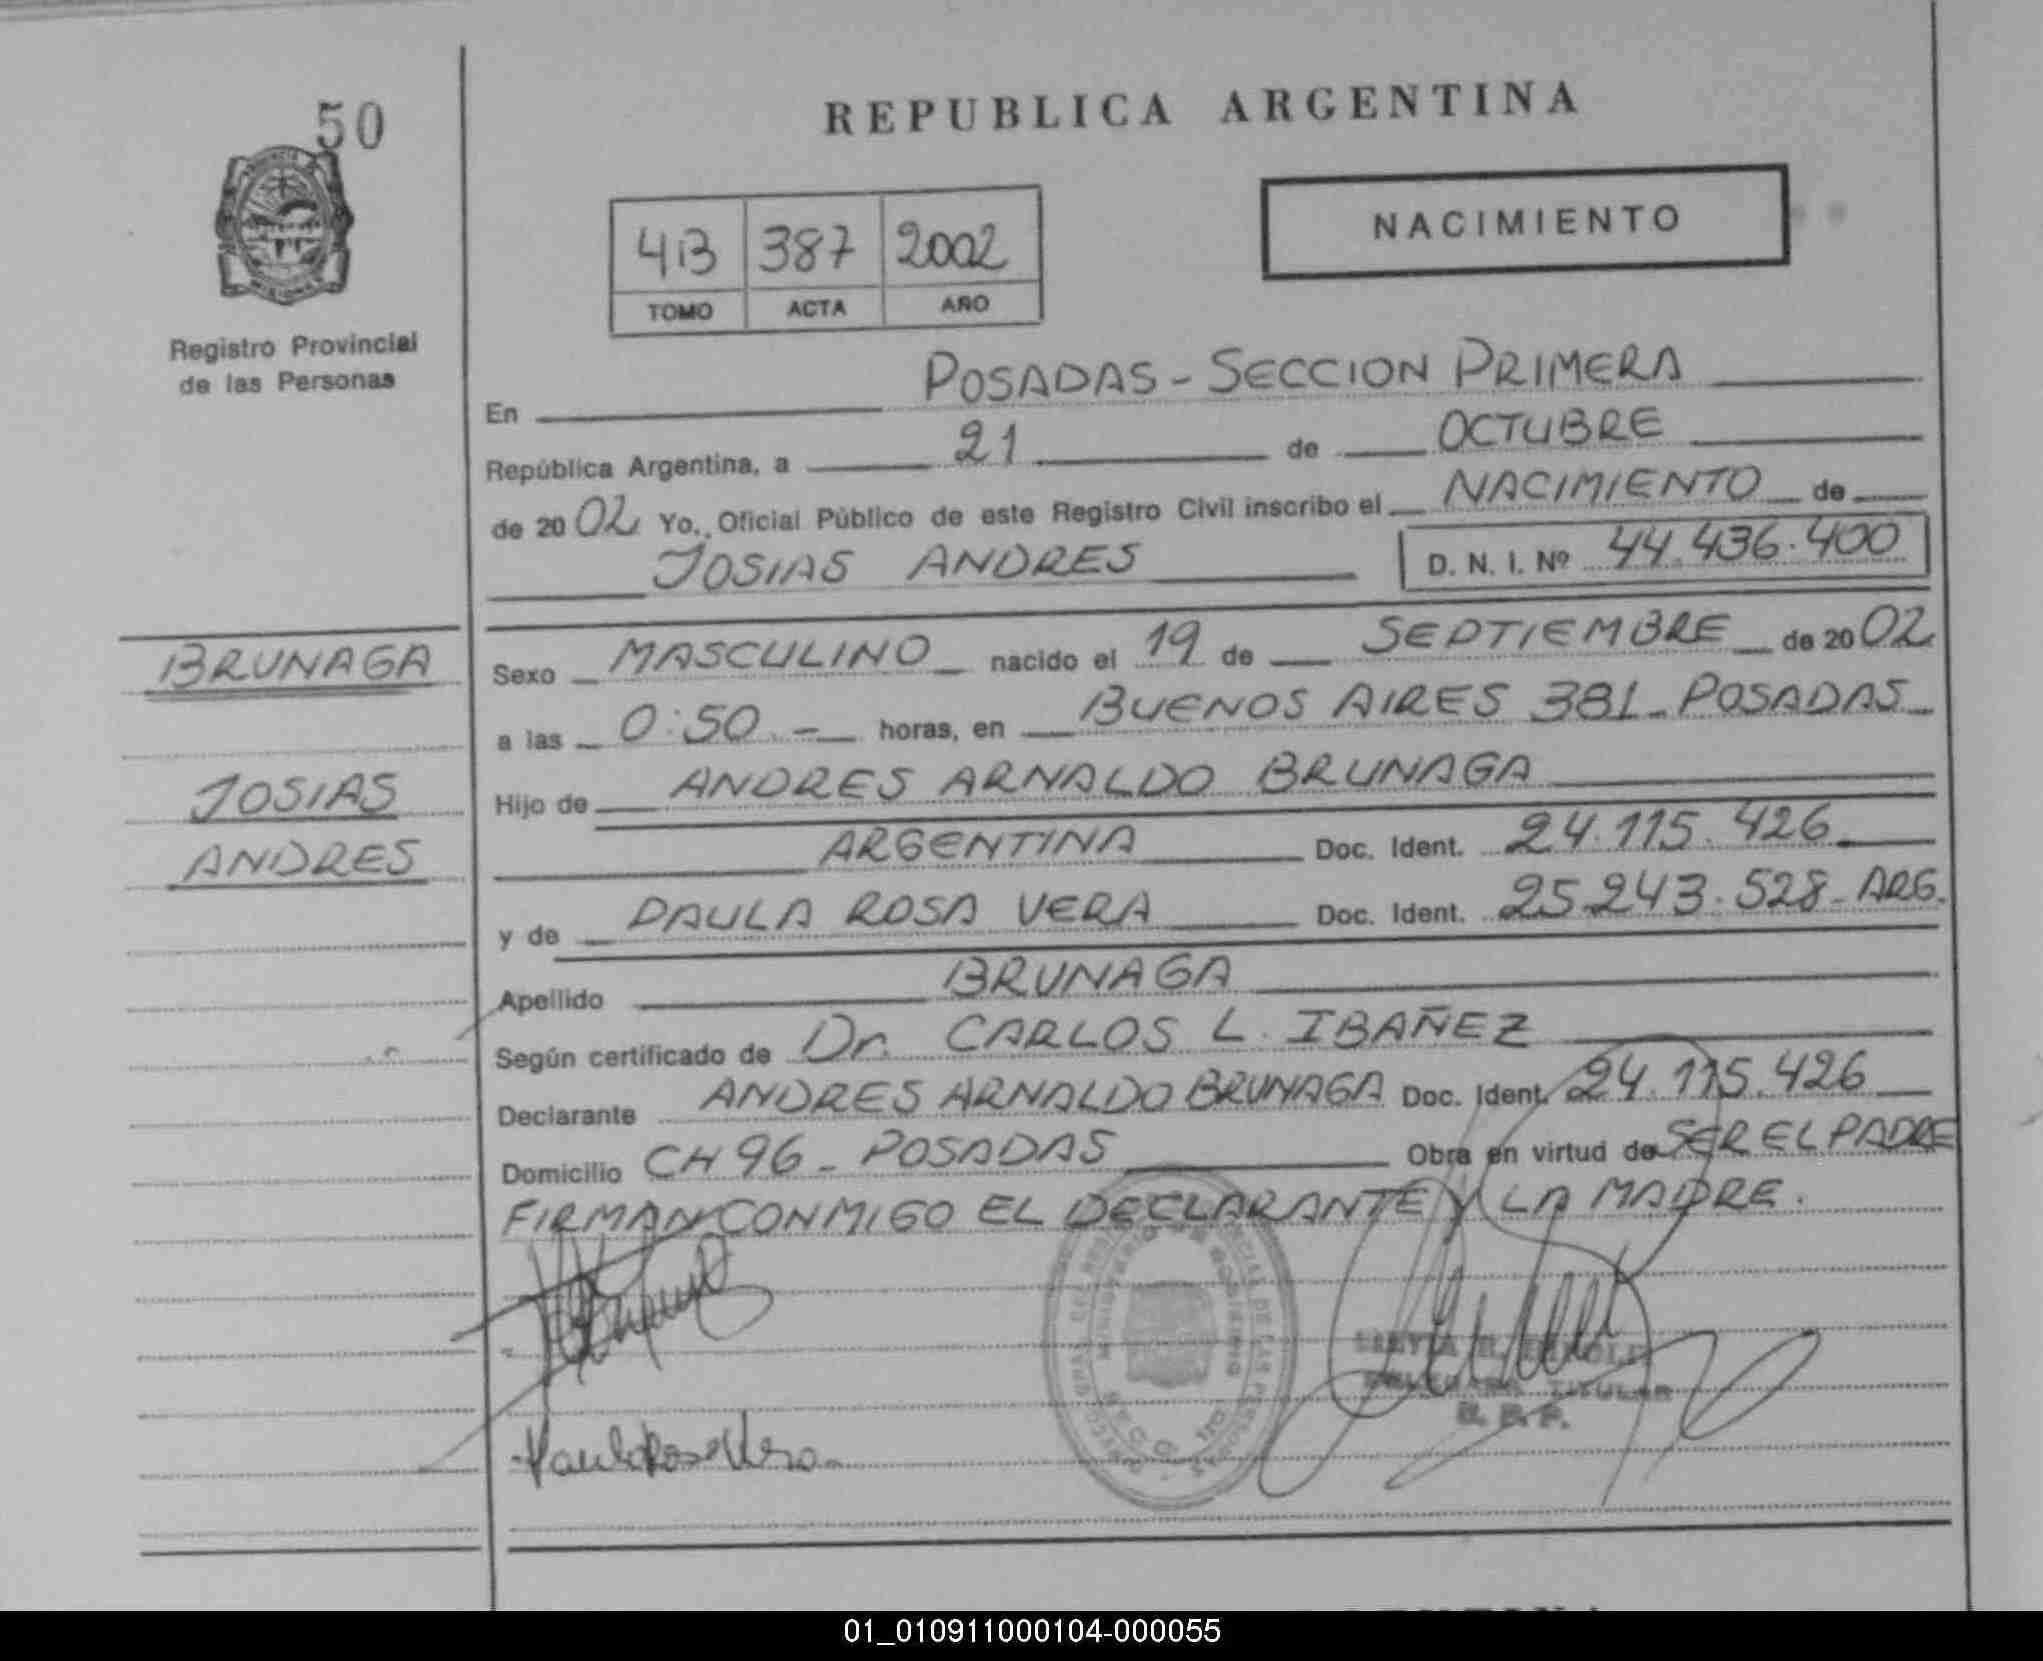 50
REPUBLICA ARGENTINA
NACIMIENTO
4B 387 2002
TOMO ACTA AÑO
Registro Provincial
de las Personas
En POSADAS - SECCION PRIMERA
República Argentina, a 21 de OCTUBRE
de 2002 Yo, Oficial Público de este Registro Civil inscribo el NACIMIENTO de
JOSIAS ANDRES D. N. I. Nº 44.436.400
BRUNAGA
JOSIAS
ANDRES
Sexo MASCULINO nacido el 19 de SEPTIEMBRE de 2002
a las 0:50.- horas, en BUENOS AIRES 381 - POSADAS
Hijo de ANDRES ARNALDO BRUNAGA
ARGENTINA Doc. Ident. 24.115.426
y de PAULA ROSA VERA Doc. Ident. 25.243.528 - ARG.
Apellido BRUNAGA
Según certificado de Dr. CARLOS L. IBAÑEZ
Declarante ANDRES ARNALDO BRUNAGA Doc. Ident. 24.115.426
Domicilio CH 96 - POSADAS Obra en virtud de SER EL PADRE
FIRMAN CONMIGO EL DECLARANTE Y LA MADRE.
TITULAR
Paula Rosa Vera
01_010911000104-000055